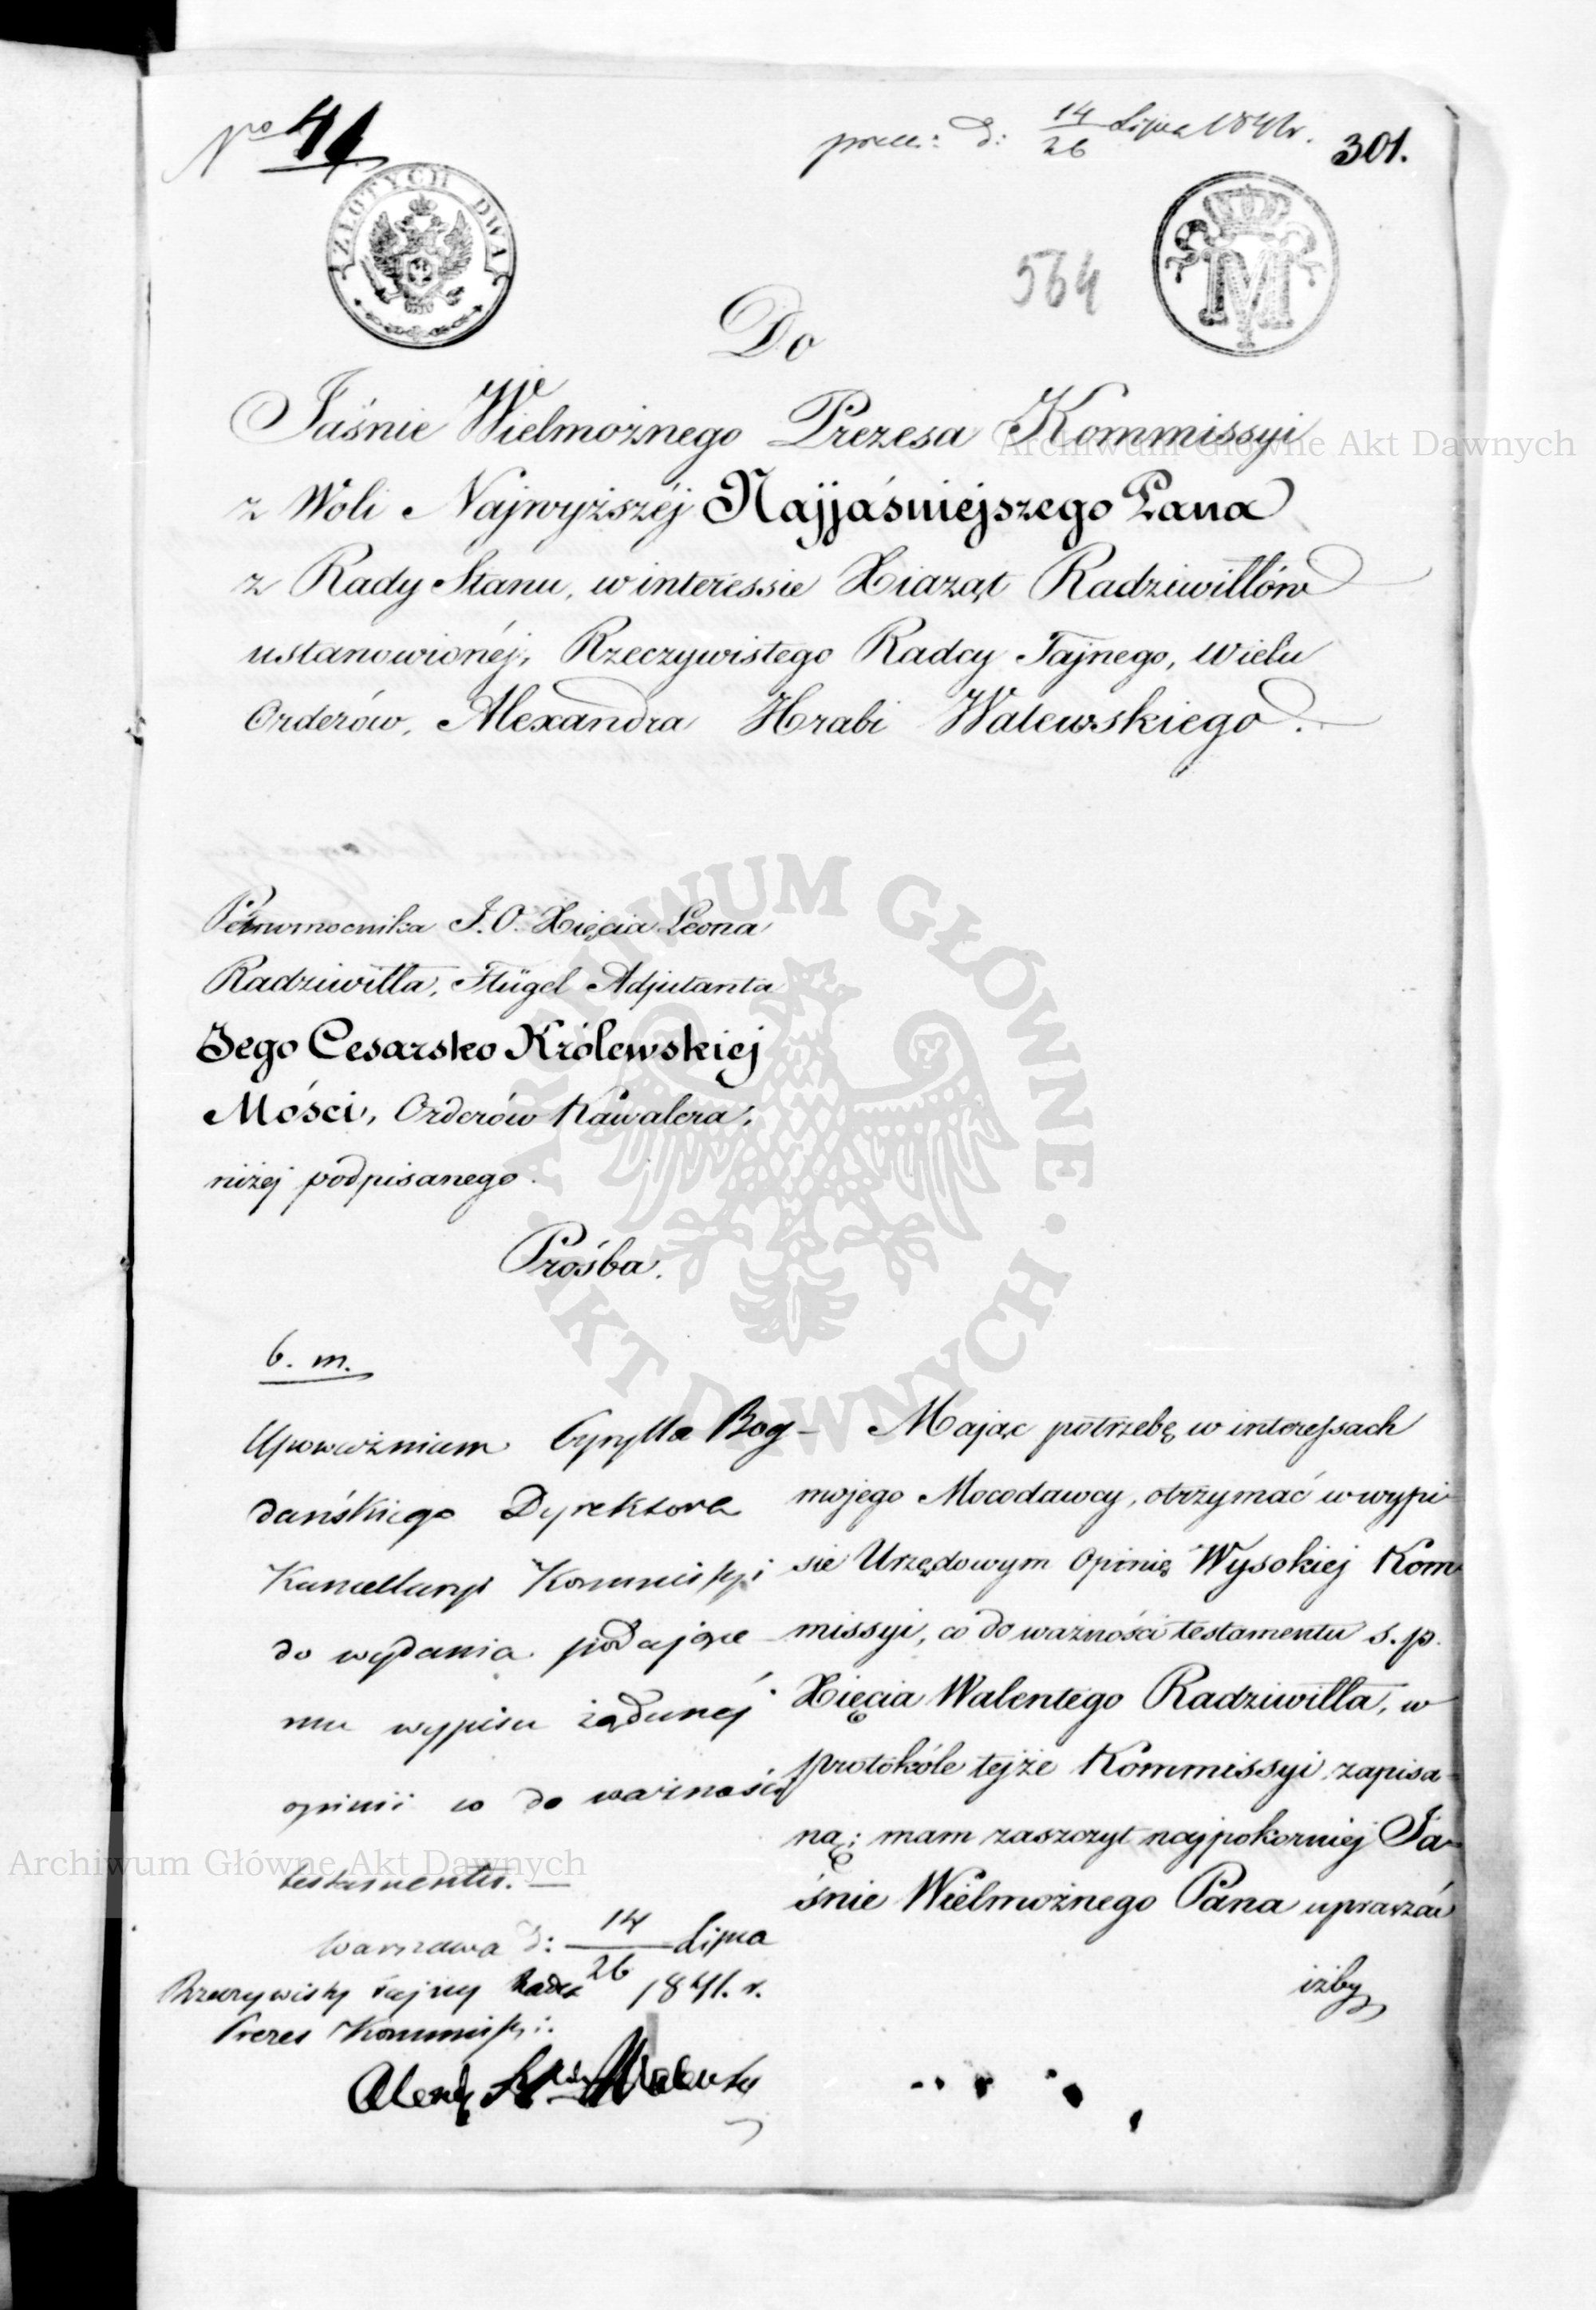 No 41
d: 14/26 Lipca 1841 r.
301.
ZŁOTYCH DWA
564
Do
Jaśnie Wielmożnego Prezesa Kommissyi
z Woli Najwyższéj Najjaśniejszego Pana
z Rady Stanu, w interessie Xiażąt Radziwiłłów
ustanowionéj, Rzeczywistego Radcy Tajnego, wielu
Orderów, Alexandra Hrabi Walewskiego.
Pełnomocnika J. O. Xięcia Leona
Radziwiłła, Flügel Adjutanta
Jego Cesarsko Królewskiej
Mości, Orderów Kawalera,
niżej podpisanego.
Prośba.
b. m.
Upoważniam Cyrylla Bog-
dańskiego Dyrektora
Kancellaryi Kommissyi
do wydania podające-
mu wypisu żądanéj
opinii co do ważności
testamentu. —
Warszawa d: 14/26 Lipca
1841. r.
Rzeczywisty Tajny Radca
Prezes Kommissyi:
Alexr Hr. Walewski
Mając potrzebę w interessach
mojego Mocodawcy, otrzymać w wypi-
sie Urzędowym Opinię Wysokiej Kom-
missyi, co do ważności testamentu s. p.
Xięcia Walentego Radziwiłła, w
protokóle tejże Kommissyi zapisa-
ną; mam zaszczyt najpokorniej Ja-
śnie Wielmożnego Pana upraszać
iżby
Archiwum Główne Akt Dawnych
ARCHIWUM GŁÓWNE AKT DAWNYCH
Archiwum Główne Akt Dawnych